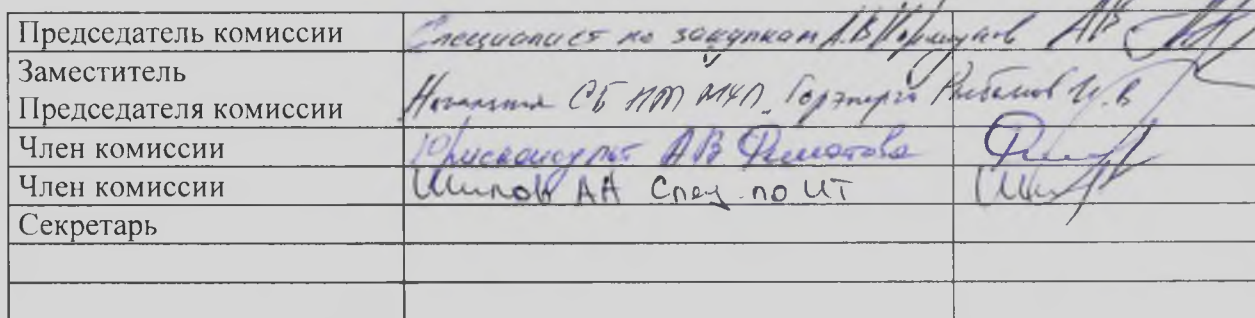 Председатель комиссии Специалист по закупкам А.В.
Заместитель
Председателя комиссии СБ МУП Горэнерго
Член комиссии Юрисконсульт АВ
Член комиссии Шилов АА Спец. по ИТ
Секретарь